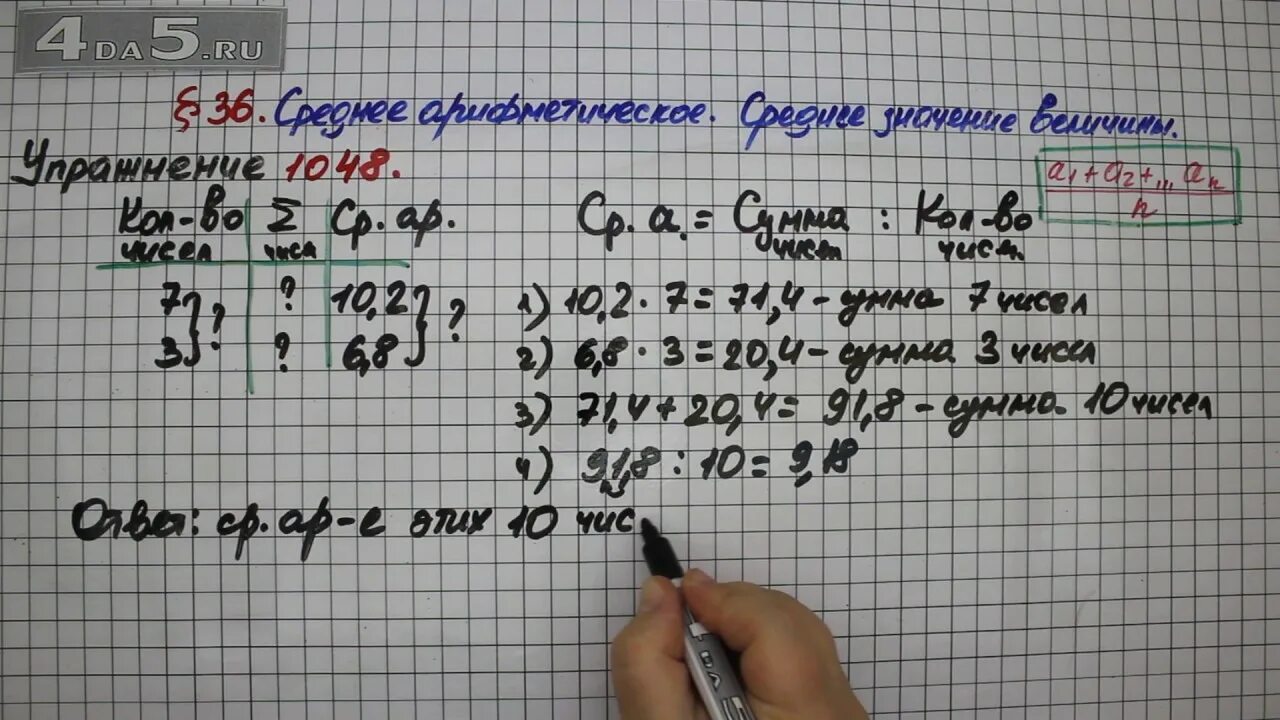 4DA5.RU
§ 36. Среднее арифметическое. Среднее значение величины.
Упражнение 1048.
a₁ + a₂ + ,,, aₙ
n
Кол-во чисел Σ чисел Ср. ар.
Ср. а. = Сумма чисел : Кол-во чисел
7 } ? ? 10,2 } ?
3 ? 6,8
1) 10,2 · 7 = 71,4 - сумма 7 чисел
2) 6,8 · 3 = 20,4 - сумма 3 чисел
3) 71,4 + 20,4 = 91,8 - сумма 10 чисел
4) 91,8 : 10 = 9,18
Ответ: ср. ар-е этих 10 чис